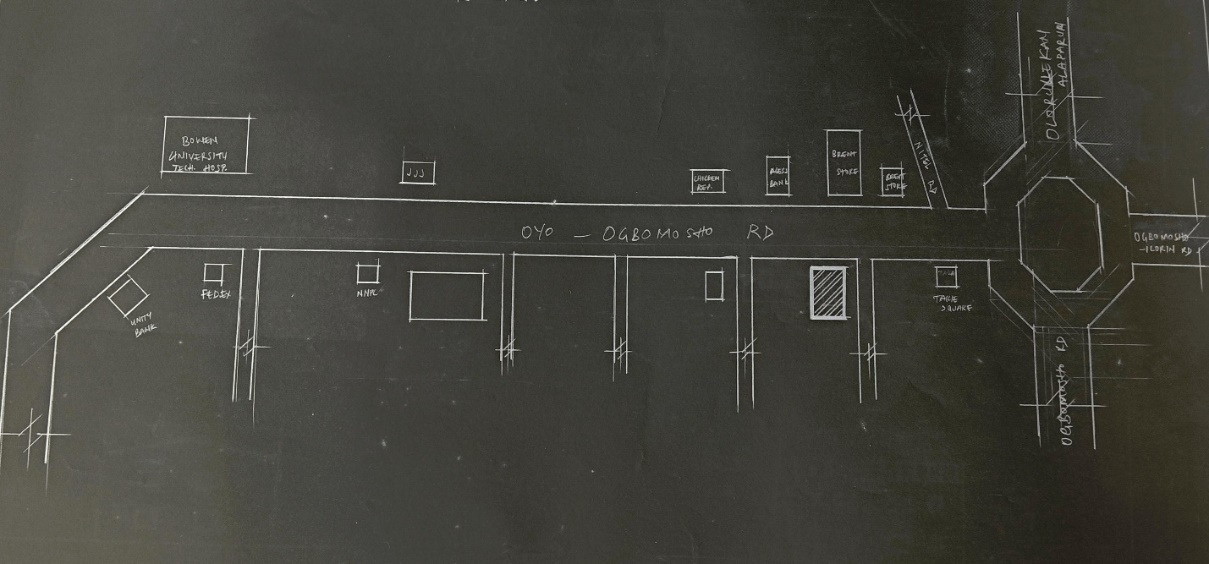 BOWEN
UNIVERSITY
TECH. HOSP.
JJJ
CHICKEN
REP.
ACCESS
BANK
BRENT
STORE
BRENT
STORE
NITEL RD
OLORUNLEKAN
ALAPARUN
OYO – OGBOMOSHO RD
OGBOMOSHO
-ILORIN RD
UNITY
BANK
FEDEX
NNPC
TAKIE
SQUARE
OGBOMOSHO RD